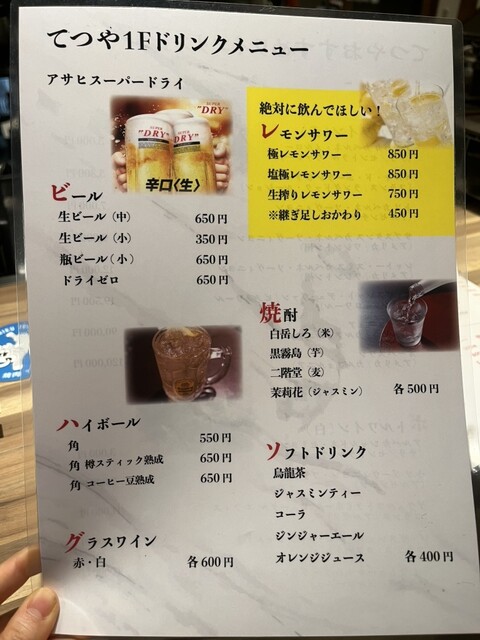 てつや1Fドリンクメニュー
アサヒスーパードライ
SUPER "DRY"
SUPER "DRY"
SUPER "DRY"
辛口〈生〉
ビール
生ビール（中） 650円
生ビール（小） 350円
瓶ビール（小） 650円
ドライゼロ 650円
絶対に飲んでほしい！
レモンサワー
極レモンサワー 850円
塩極レモンサワー 850円
生搾りレモンサワー 750円
※継ぎ足しおかわり 450円
焼酎
白岳しろ（米）
黒霧島（芋）
二階堂（麦）
茉莉花（ジャスミン） 各500円
ハイボール
角 550円
角 樽スティック熟成 650円
角 コーヒー豆熟成 650円
グラスワイン
赤・白 各600円
ソフトドリンク
烏龍茶
ジャスミンティー
コーラ
ジンジャーエール
オレンジジュース 各400円